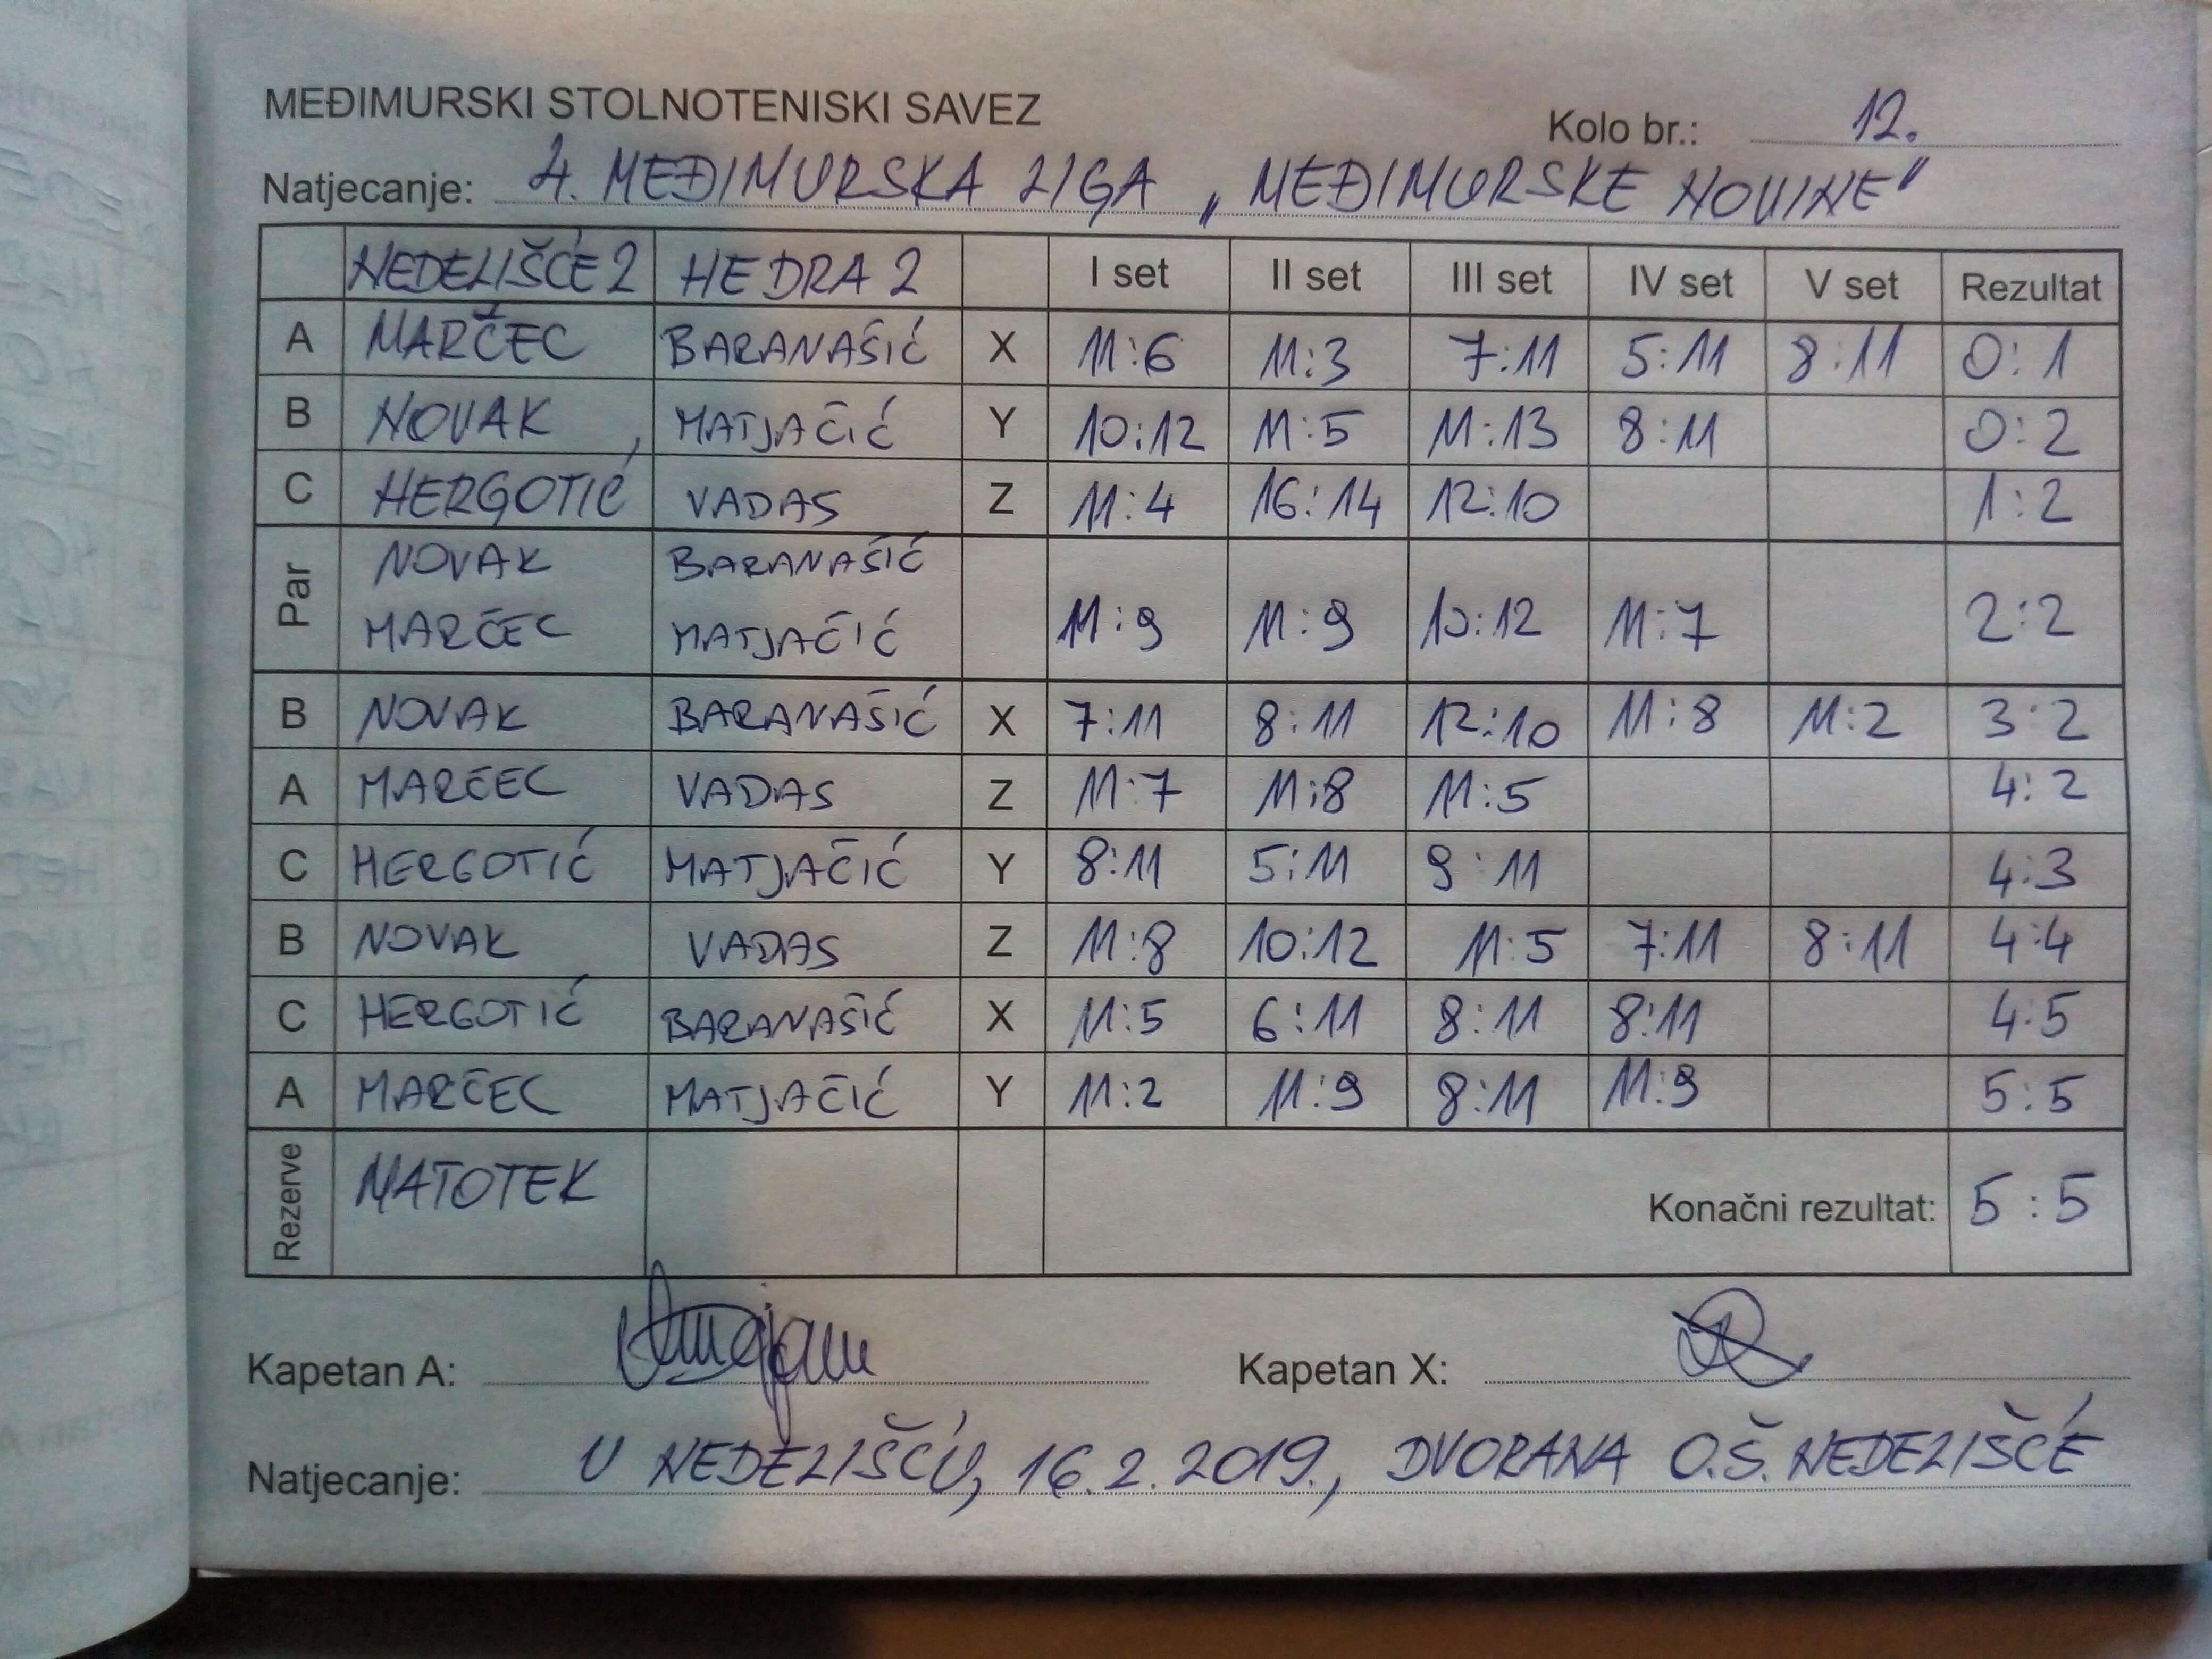 MEĐIMURSKI STOLNOTENISKI SAVEZ
Kolo br.: 12.
Natjecanje: 4. MEĐIMURSKA LIGA „MEĐIMURSKE NOVINE"
NEDELIŠĆE 2 HEDRA 2 I set II set III set IV set V set Rezultat
A MARČEC BARANAŠIĆ X 11:6 11:3 7:11 5:11 8:11 0:1
B NOVAK MATJAČIĆ Y 10:12 11:5 11:13 8:11 0:2
C HERGOTIĆ VADAS Z 11:4 16:14 12:10 1:2
Par NOVAK BARANAŠIĆ
MARČEC MATJAČIĆ 11:9 11:9 10:12 11:7 2:2
B NOVAK BARANAŠIĆ X 7:11 8:11 12:10 11:8 11:2 3:2
A MARČEC VADAS Z 11:7 11:8 11:5 4:2
C HERGOTIĆ MATJAČIĆ Y 8:11 5:11 9:11 4:3
B NOVAK VADAS Z 11:8 10:12 11:5 7:11 8:11 4:4
C HERGOTIĆ BARANAŠIĆ X 11:5 6:11 8:11 8:11 4:5
A MARČEC MATJAČIĆ Y 11:2 11:9 8:11 11:9 5:5
Rezerve MATOTEK Konačni rezultat: 5:5
Kapetan A: Kapetan X:
Natjecanje: U NEDELIŠĆU, 16.2.2019., DVORANA O.Š. NEDELIŠĆE